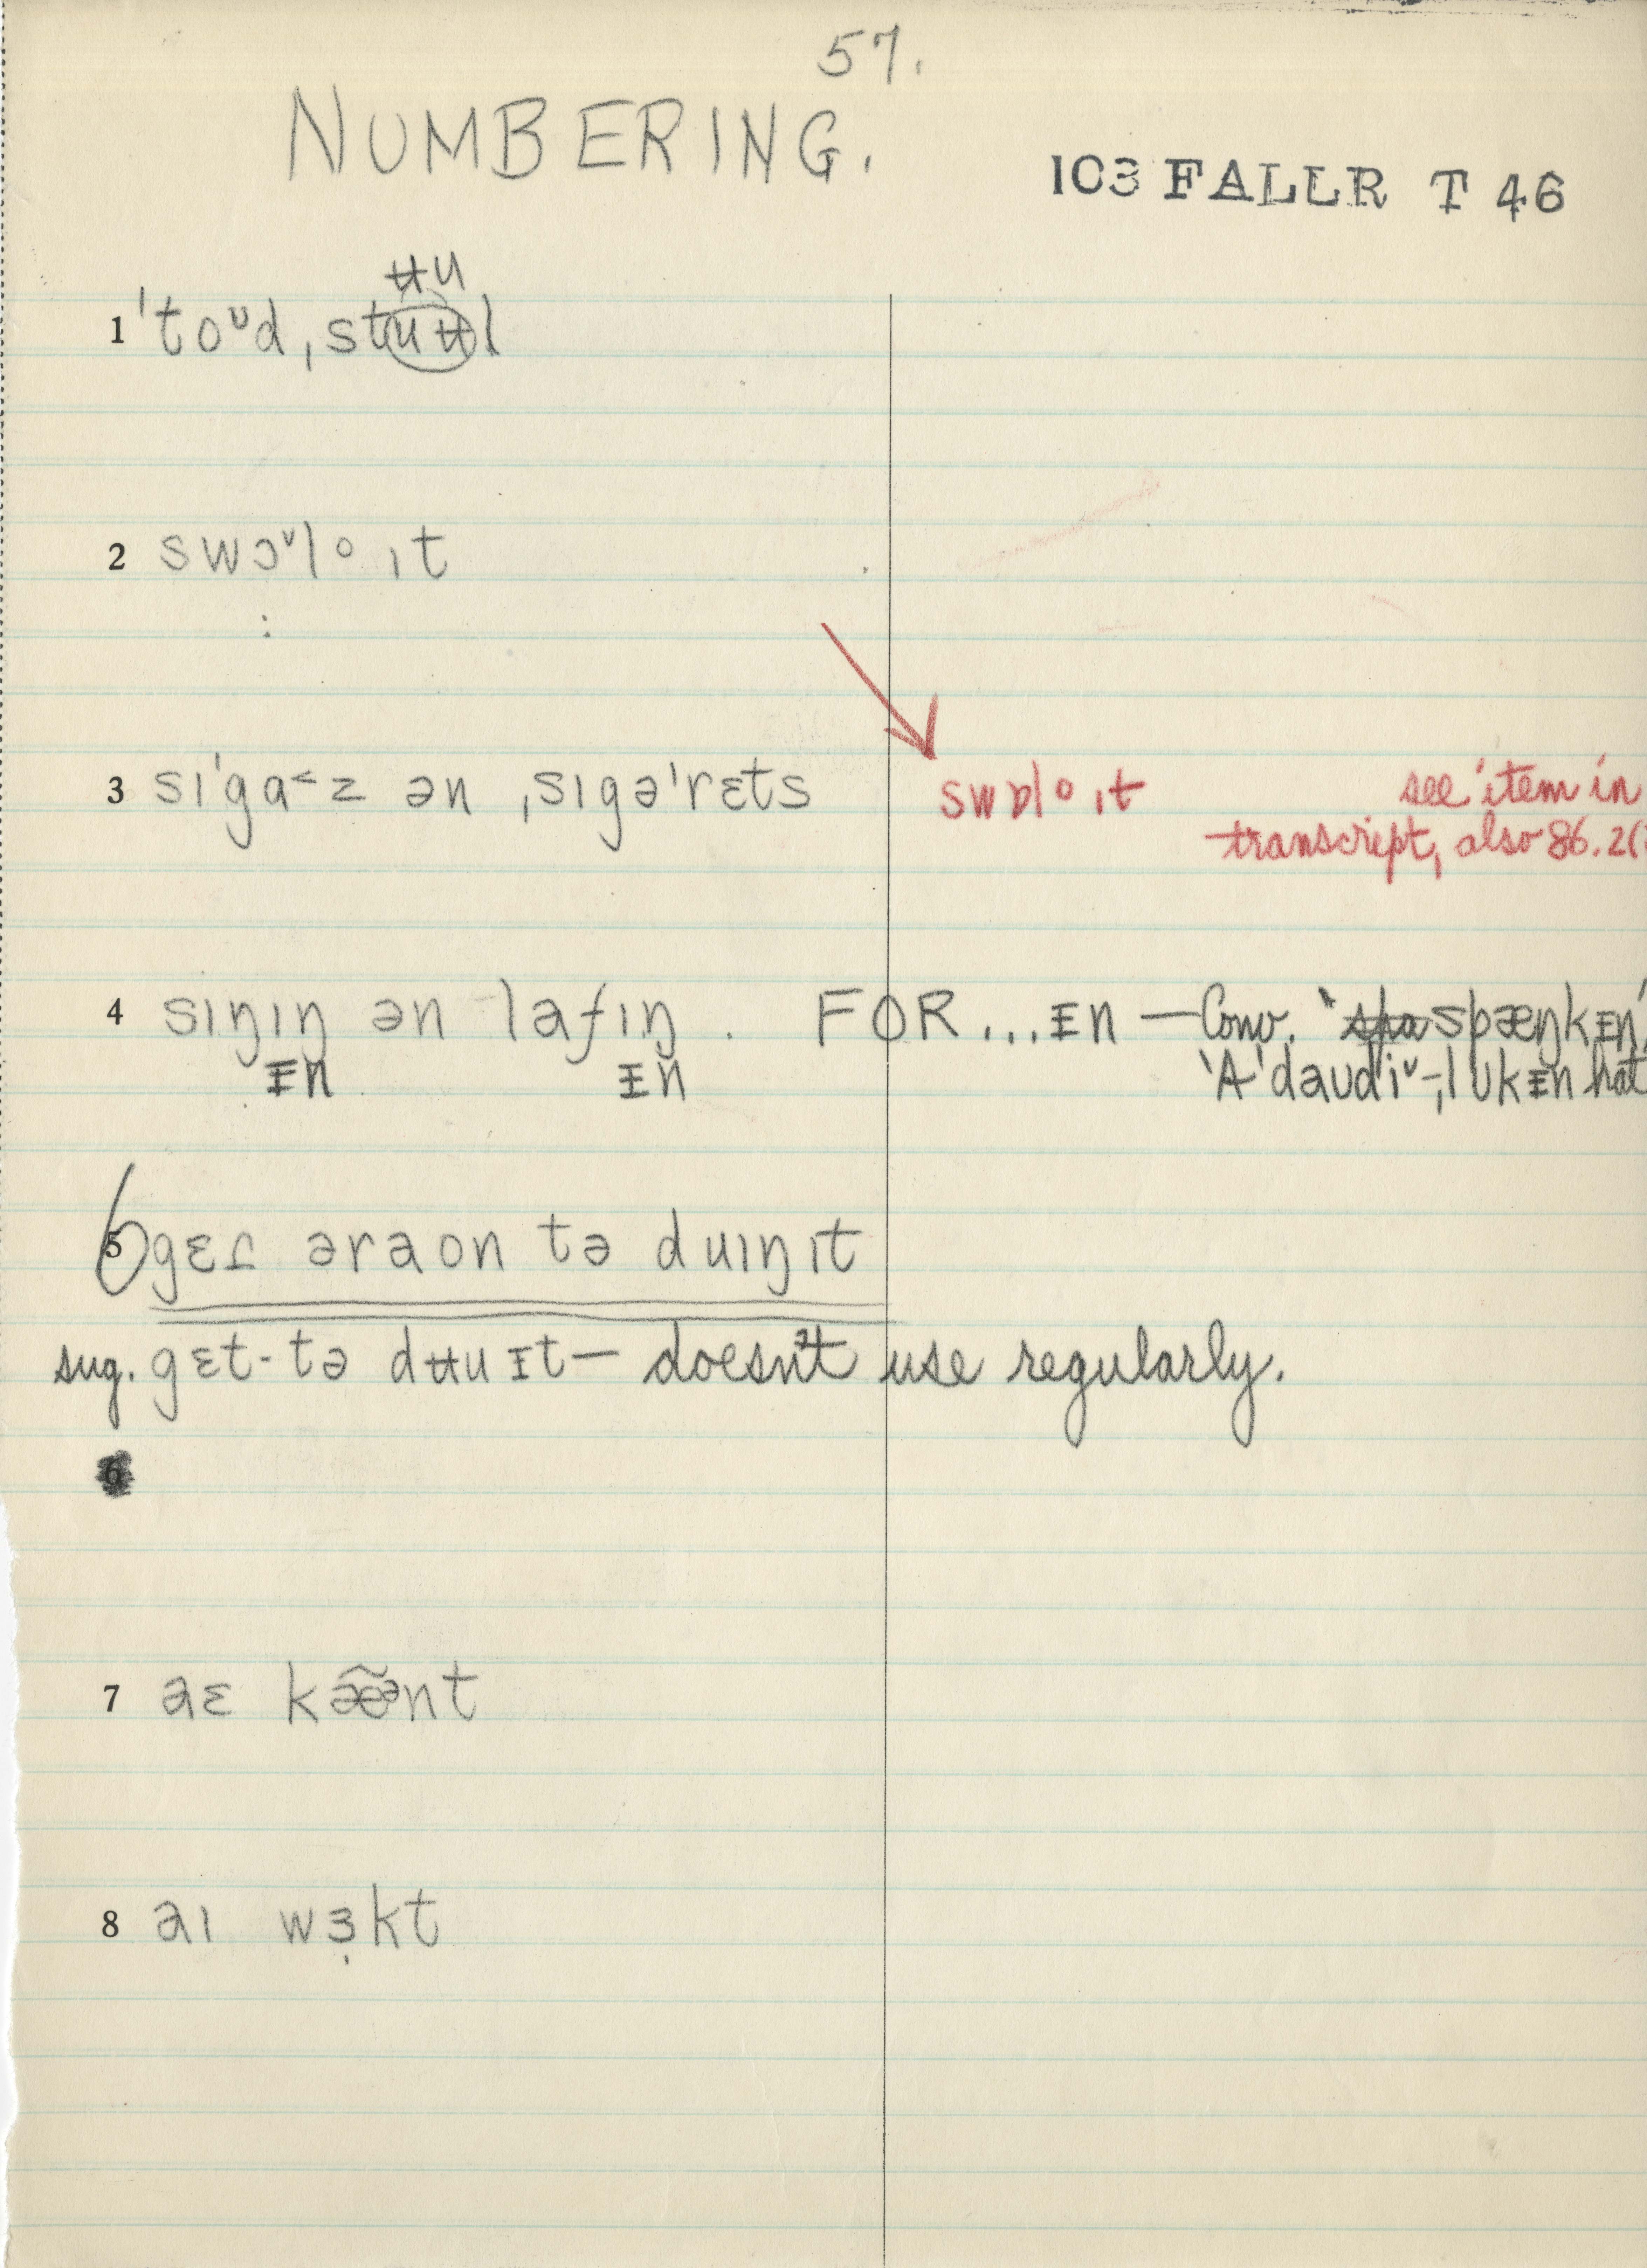 57.
NUMBERING.
103 FALLR T 46
ʉu
1 ˈtoᶷd ˌstuʉl
2 swɔˇl o ɪt
3 sɪˈga˂z ən ˌsɪgəˈrɛts
swɒl o ɪt
see item in
transcript, also 86.2(
4 sɪŋɪŋ ən lafɪŋ . FOR...ᵻn — Conv. "spa spæŋkᵻn"
ᵻn ᵻn
'A'daudiˇ-ˌlʊkᵻn hat
6 5 gɛɾ əraon tə duɪŋ ɪt
sug. gɛt- tə dʉu ᵻt — doesn't use regularly.
6
7 aɛ kæ̃ᵊnt
8 aɪ wɜ̣kt